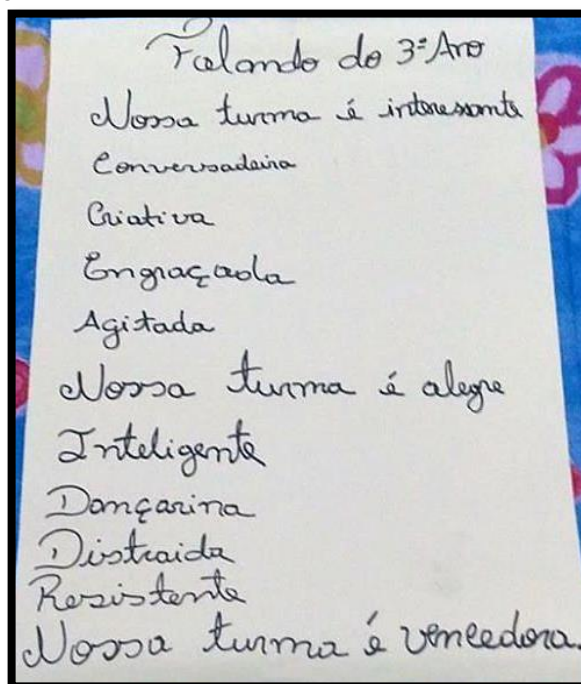 Falando do 3º Ano
Nossa turma é interessante
Conversadeira
Criativa
Engraçada
Agitada
Nossa turma é alegre
Inteligente
Dançarina
Distraida
Resistente
Nossa turma é vencedora.